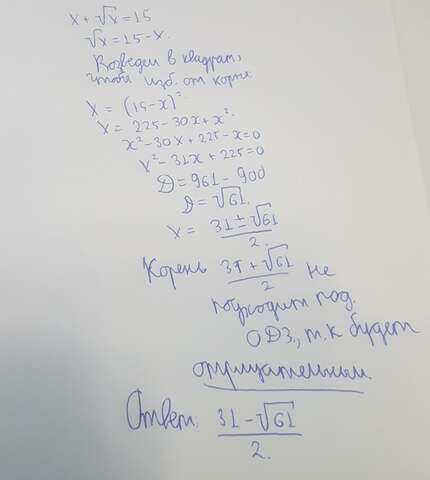 x + √x = 15
√x = 15 - x.
Возведем в квадрат,
чтобы изб. от корня.
x = (15-x)².
x = 225 - 30x + x².
x² - 30x + 225 - x = 0
x² - 31x + 225 = 0
D = 961 - 900
D = √61.
x = (31 ± √61)/2.
Корень (31 + √61)/2 не
подходит под.
ОДЗ., т.к будет
отрицательным.
Ответ: (31 - √61)/2.